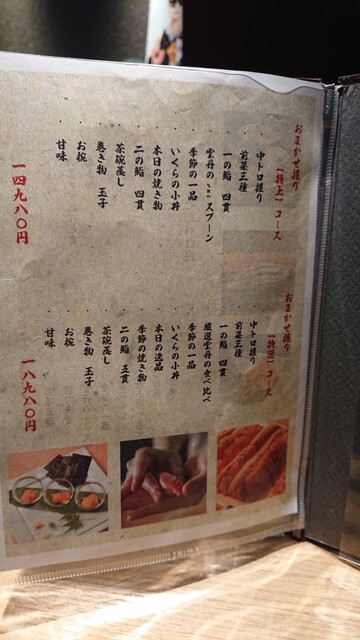 おまかせ握り
【特上】コース
中トロ握り
前菜三種
一の鮨 四貫
雲丹の スプーン
季節の一品
いくらの小丼
本日の焼き物
二の鮨 四貫
茶碗蒸し
巻き物 玉子
お椀
甘味
一四九八〇円
おまかせ握り
【特選】コース
中トロ握り
前菜三種
一の鮨 四貫
厳選雲丹の食べ比べ
季節の一品
いくらの小丼
本日の逸品
季節の焼き物
二の鮨 五貫
茶碗蒸し
巻き物 玉子
お椀
甘味
一八九八〇円